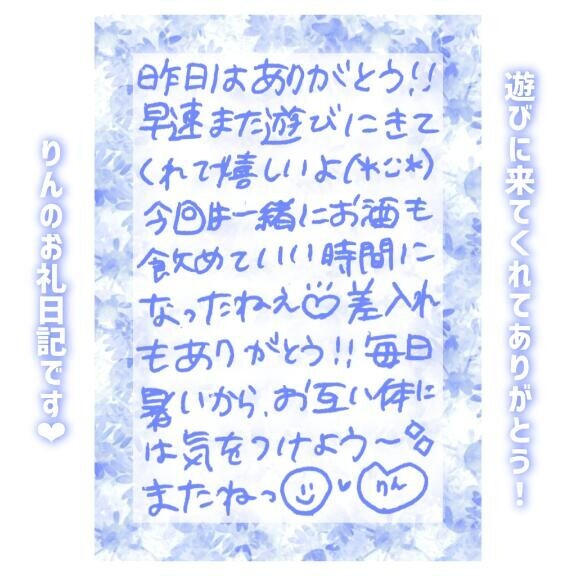 遊びに来てくれてありがとう!
昨日はありがとう!!
早速また遊びにきて
くれて嬉しいよ(*ᵕ̈*)
今回は一緒にお酒も
飲めていい時間に
なったねえ 差入れ
もありがとう!!毎日
暑いから、お互い体に
は気をつけよう〜
またねっ りん
りんのお礼日記です❤